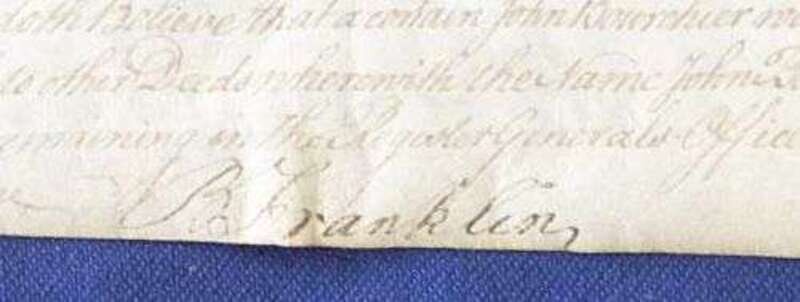 doth Believe that a certain John Bourchier
to other Deeds wherewith the Name John
remaining in the Register Generals Office
R. Franklin,